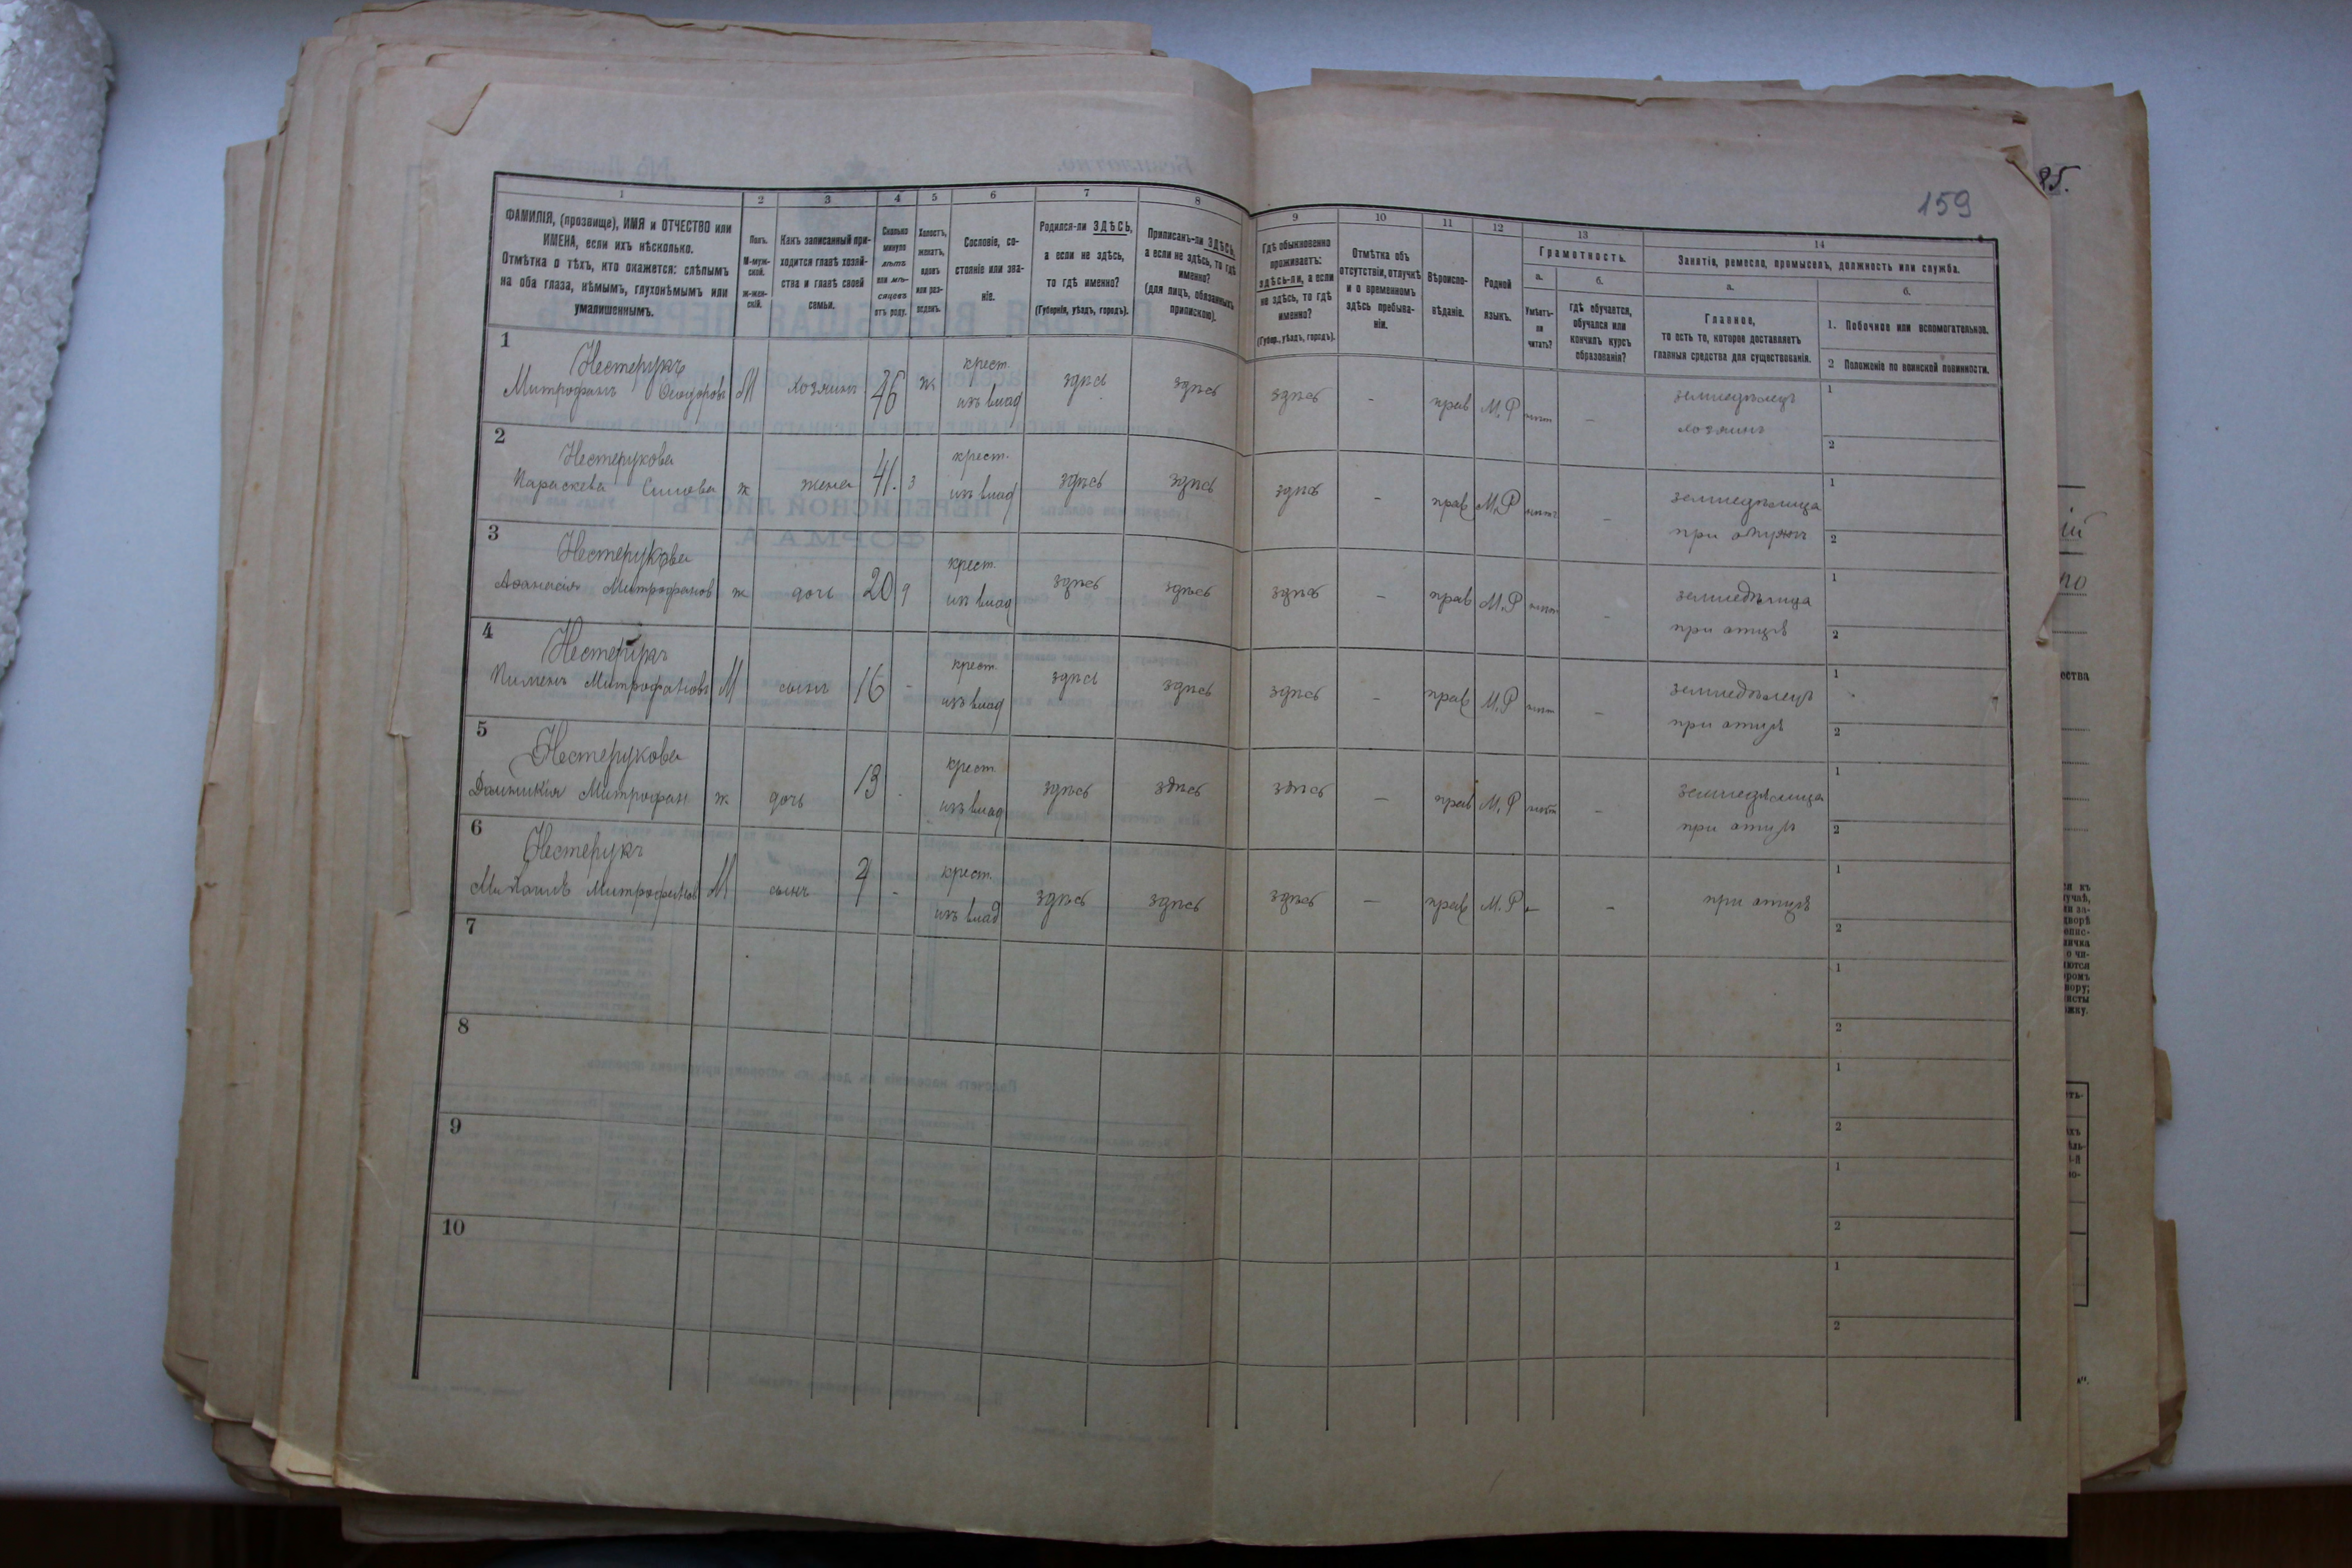 159
1
2
3
4
5
6
7
8
9
10
11
12
13
14
ФАМИЛІЯ, (прозвище), ИМЯ и ОТЧЕСТВО или
ИМЕНА, если ихъ нѣсколько.
Отмѣтка о тѣхъ, кто окажется: слѣпымъ
на оба глаза, нѣмымъ, глухонѣмымъ или
умалишеннымъ.
Полъ.
М-муж-
ской.
Ж-жен-
скій.
Какъ записанный при-
ходится главѣ хозяй-
ства и главѣ своей
семьи.
Сколько
минуло
лѣтъ
или мѣ-
сяцевъ
отъ роду.
Холостъ,
женатъ,
вдовъ
или раз-
веденъ.
Сословіе, со-
стояніе или зва-
ніе.
Родился-ли ЗДѢСЬ,
а если не здѣсь,
то гдѣ именно?
(Губернія, уѣздъ, городъ).
Приписанъ-ли ЗДѢСЬ,
а если не здѣсь, то гдѣ
именно?
(для лицъ, обязанныхъ
припискою).
Гдѣ обыкновенно
проживаетъ:
здѣсь-ли, а если
не здѣсь, то гдѣ
именно?
(Губер., уѣздъ, городъ).
Отмѣтка объ
отсутствіи, отлучкѣ
и о временномъ
здѣсь пребыва-
ніи.
Вѣроиспо-
вѣданіе.
Родной
языкъ.
Грамотность.
а.
Умѣетъ-
ли
читать?
б.
гдѣ обучается,
обучался или
кончилъ курсъ
образованія?
Занятіе, ремесло, промыселъ, должность или служба.
а.
Главное,
то есть то, которое доставляетъ
главныя средства для существованія.
б.
1. Побочное или вспомогательное.
2 Положеніе по воинской повинности.
1
Нестерукъ
Митрофанъ Ѳеодоровъ М хозяинъ 46 ж крест. изъ влад здѣсь здѣсь здѣсь - прав М.Р нѣтъ - земледѣлецъ
хозяинъ
1
2
2
Нестерукова
Параскева ж жена 41. з крест. изъ влад здѣсь здѣсь здѣсь - прав М.Р нѣтъ - земледѣлица
при
1
2
3
Нестерукова
Аѳанасія Митрофанов ж дочь 20 крест. изъ влад здѣсь здѣсь здѣсь - прав М.Р нѣтъ - земледѣлица
при отцѣ
1
2
4
Нестерукъ
Пименъ Митрофановъ М сынъ 16 - крест. изъ влад здѣсь здѣсь здѣсь - прав М.Р нѣтъ - земледѣлецъ
при отцѣ
1
2
5
Нестерукова
Митрофан ж дочь 13 - крест. изъ влад здѣсь здѣсь здѣсь - прав М.Р нѣтъ - земледѣлица
при отцѣ
1
2
6
Нестерукъ
Михаилъ Митрофанов М сынъ 7 - крест. изъ влад здѣсь здѣсь здѣсь - прав М.Р - - при отцѣ
1
2
7
1
2
8
1
2
9
1
2
10
1
2